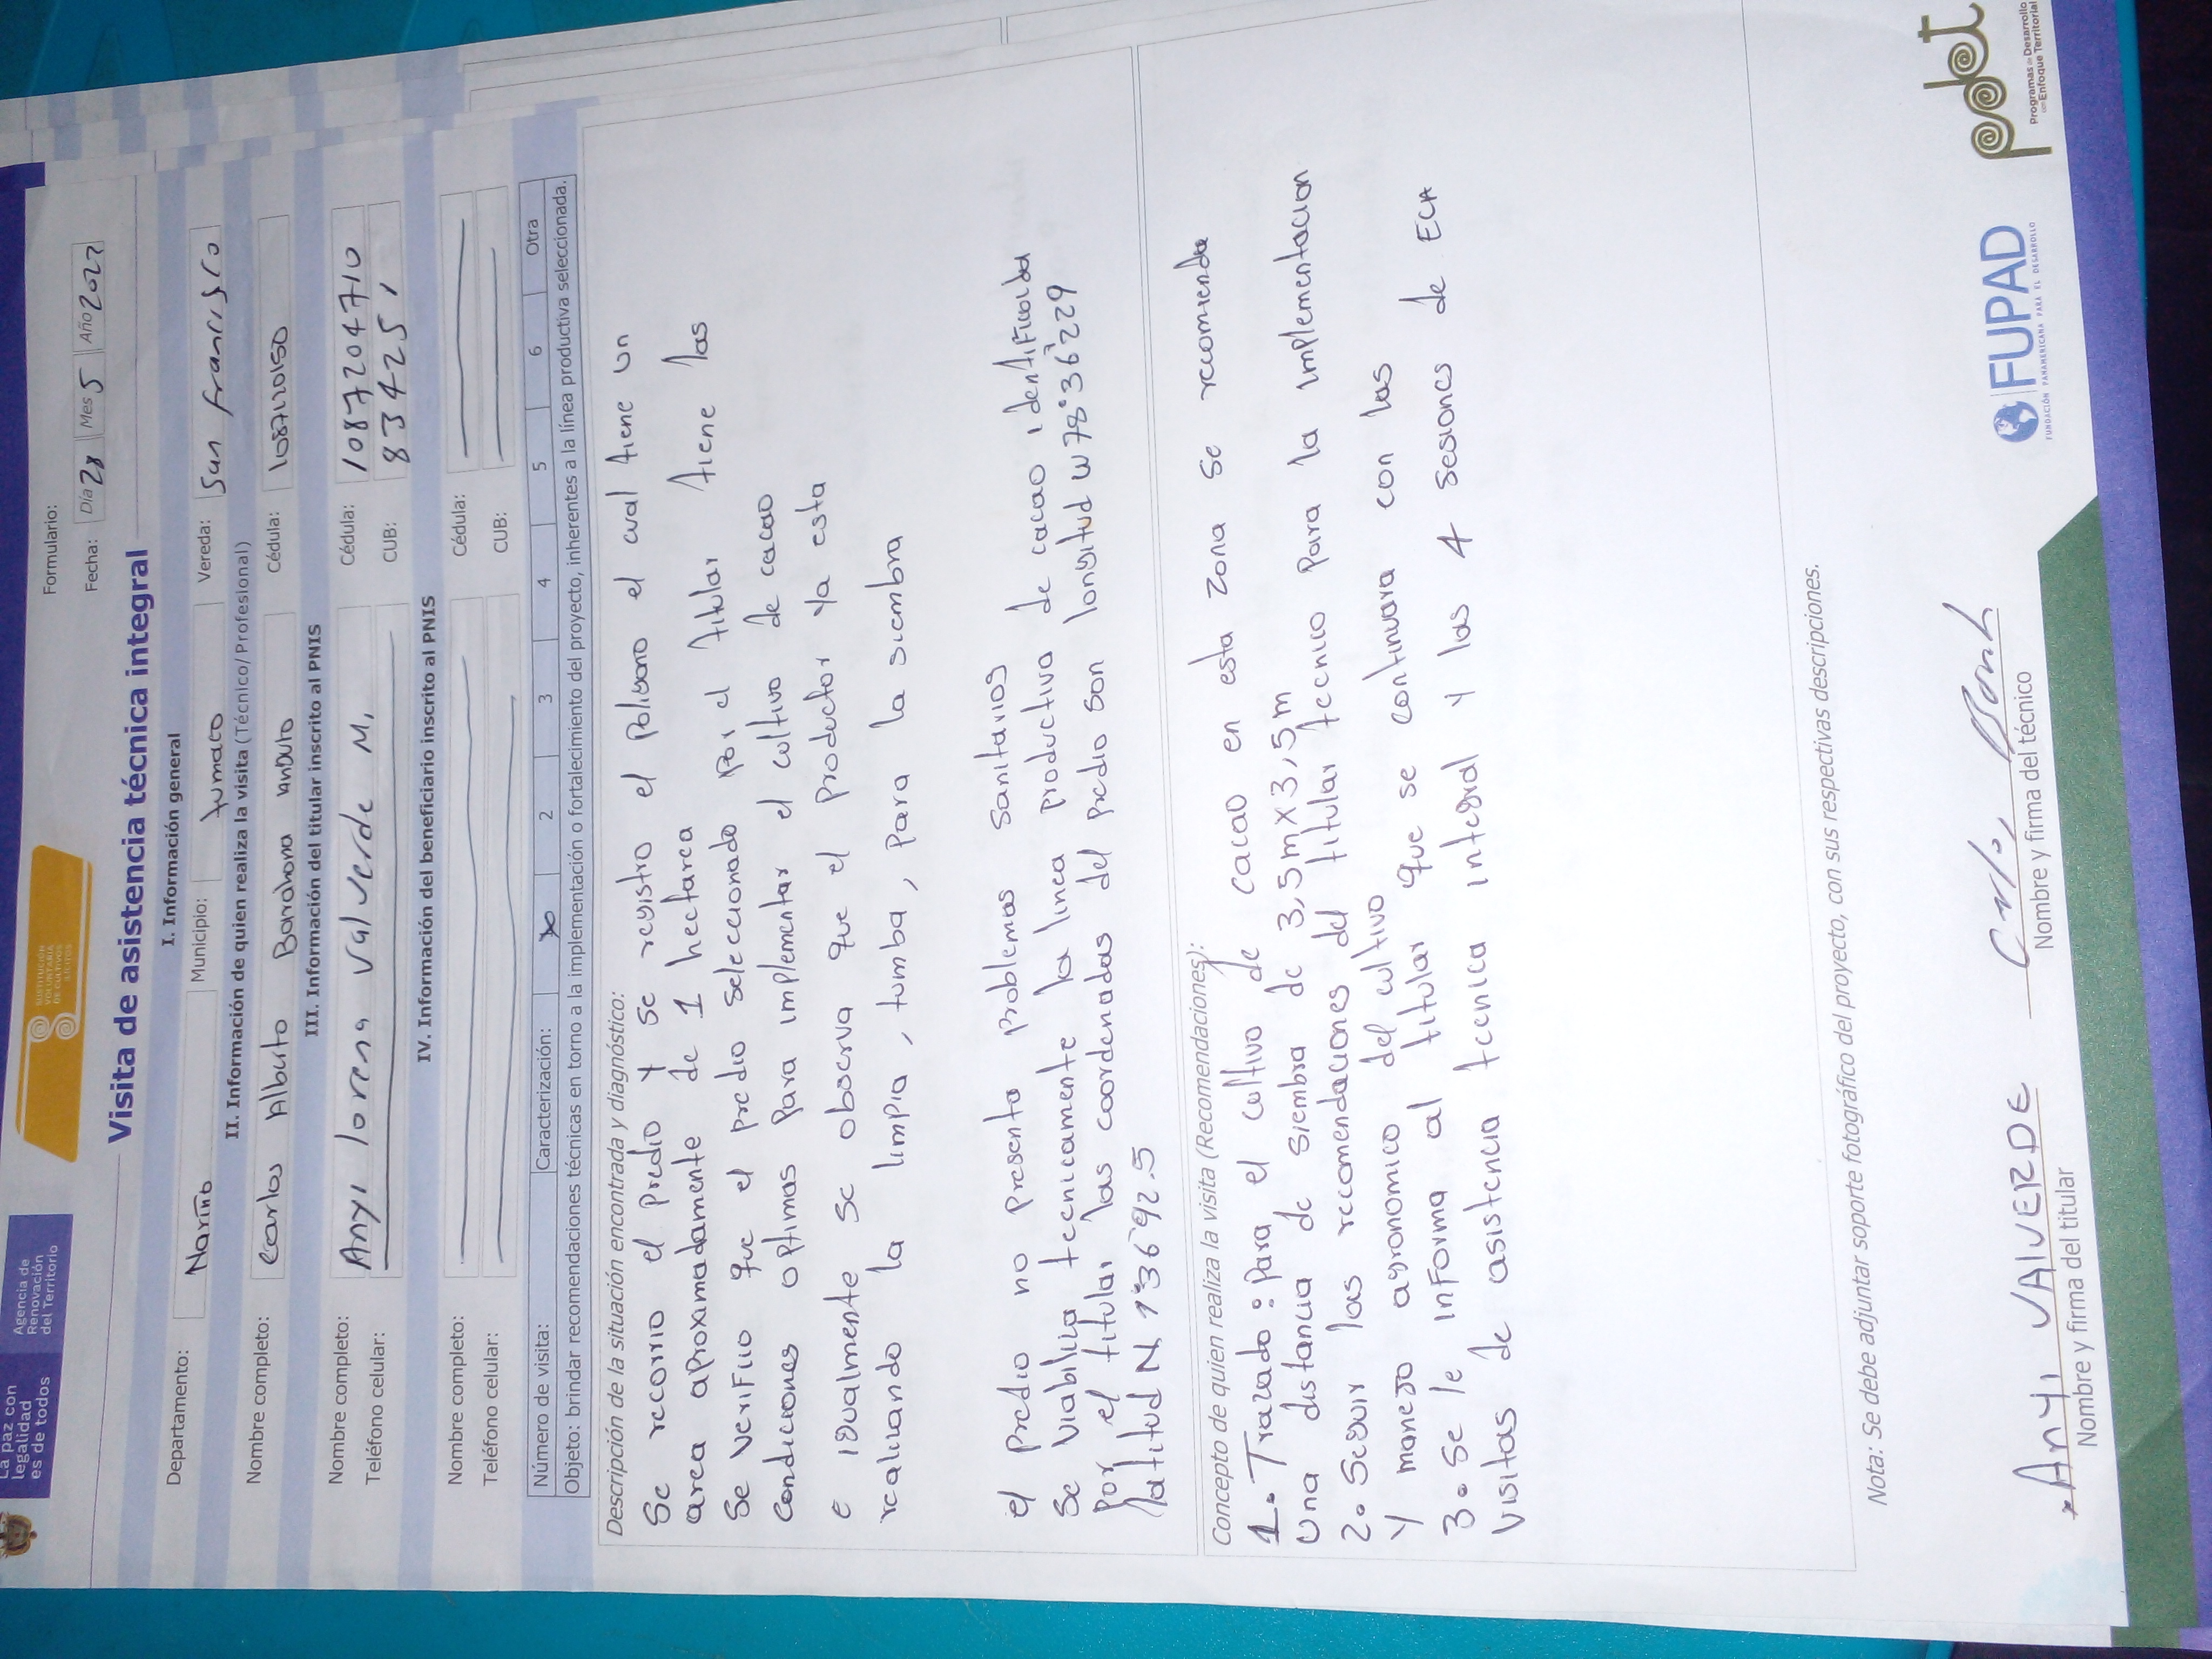 La paz con
legalidad
es de todos
Agencia de
Renovación
del Territorio
SUSTITUCIÓN
VOLUNTARIA
DE CULTIVOS
ILÍCITOS
Formulario:
Fecha: Día 28 Mes 5 Año 2022
Visita de asistencia técnica integral
I. Información general
Departamento: Nariño Municipio: tumaco Vereda: San francisco
II. Información de quien realiza la visita (Técnico/Profesional)
Nombre completo: Carlos Alberto Barahona Cédula:
III. Información del titular inscrito al PNIS
Nombre completo: Anyi lorena valverde M, Cédula: 1087204710
Teléfono celular: CUB: 83425,
IV. Información del beneficiario inscrito al PNIS
Nombre completo: Cédula:
Teléfono celular: CUB:
Número de visita: Caracterización: X 2 3 4 5 6 Otra
Objeto: brindar recomendaciones técnicas en torno a la implementación o fortalecimiento del proyecto, inherentes a la línea productiva seleccionada.
Descripción de la situación encontrada y diagnóstico:
Se recorrio el predio y se registro el poligono el cual tiene un
area aproximadamente de 1 hectarea
Se verifico que el predio seleccionado por el titular tiene las
condiciones optimas para implementar el cultivo de cacao
e igualmente se observa que el productor ya esta
realizando la limpia, tumba, para la siembra
el predio no presenta problemas sanitarios
Se viabiliza tecnicamente la linea productiva de cacao identificada
por el titular las coordenadas del predio son longitud W 78°36'229
latitud N 1°36'92.5
Concepto de quien realiza la visita (Recomendaciones):
1. Trazado: para el cultivo de cacao en esta zona se recomienda
una distancia de siembra de 3,5m x 3,5m
2. Seguir las recomendaciones del titular tecnico para la implementacion
y manejo agronomico del cultivo
3. Se le informa al titular que se continuara con las
visitas de asistencia tecnica integral y las 4 sesiones de ECA
Nota: Se debe adjuntar soporte fotográfico del proyecto, con sus respectivas descripciones.
Anyi VALVERDE
Nombre y firma del titular
Nombre y firma del técnico
FUPAD
FUNDACIÓN PANAMERICANA PARA EL DESARROLLO
pdet
Programas de Desarrollo
con Enfoque Territorial